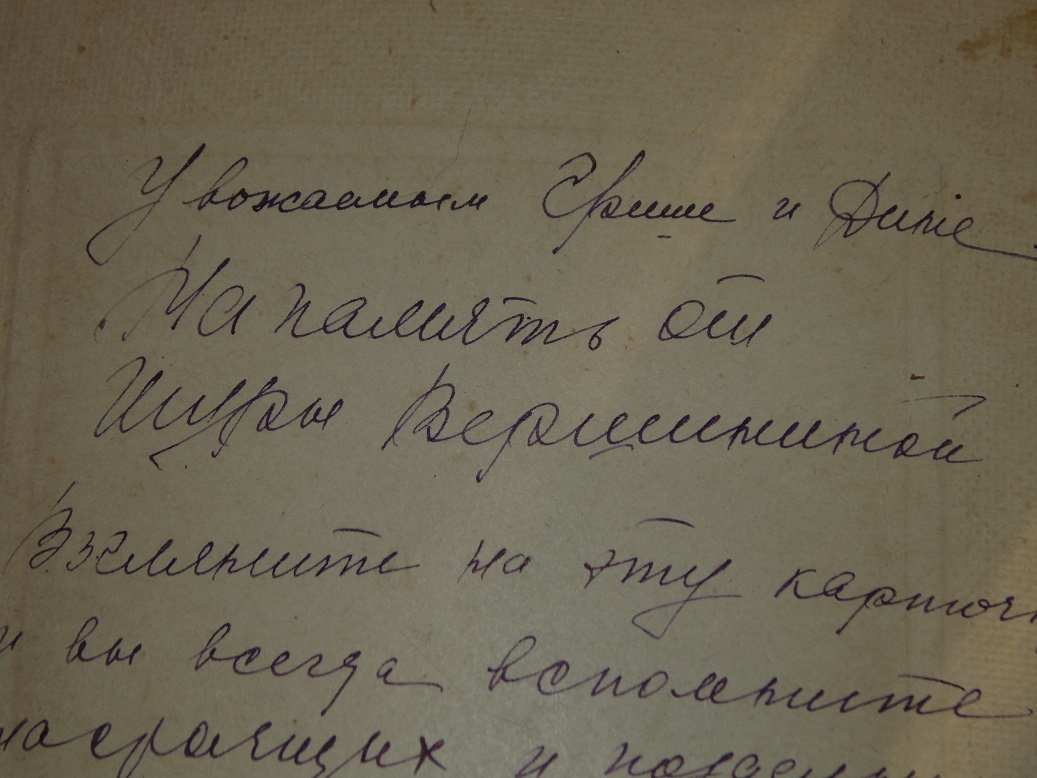 Уважаемым Грише и Дине
На память от
Шуры Вершининой
Взгляните на эту карточк
и вы всегда вспомните
и